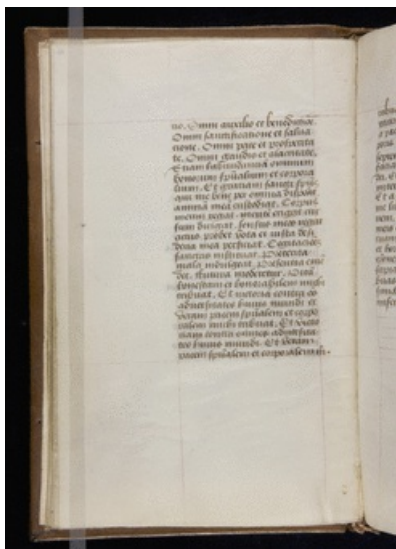 no. Omni auxilio et benedictione.
Omni sanctificatione et salua
tione. Omni pace et prosperita
te. Omni gaudio et alacritate.
Etiam habundantia omnium
bonorum spũalium et corpora
lium. Et gratiam sancti spũs
que me bene per omnia disponat
animã meã custodiat. Corpus
meum regat. mentẽ erigat cur
sum dirigat. sensus meos regat
actus probet vota et iusta desi
deria mea perficiat. Cogitatões
sanctas instituat. Preterita
mala indulgeat. presentia emẽ
det. futura moderetur. Vitã
honestam et honorabilem michi
tribuat. Et victoria contra
aduersitates huius mundi et
veram pacem spũalem et corpo
ralem michi tribuat. Et victo
riam contra omnes aduersita
tes huius mundi. Et veram
pacem spũalem et corporalem